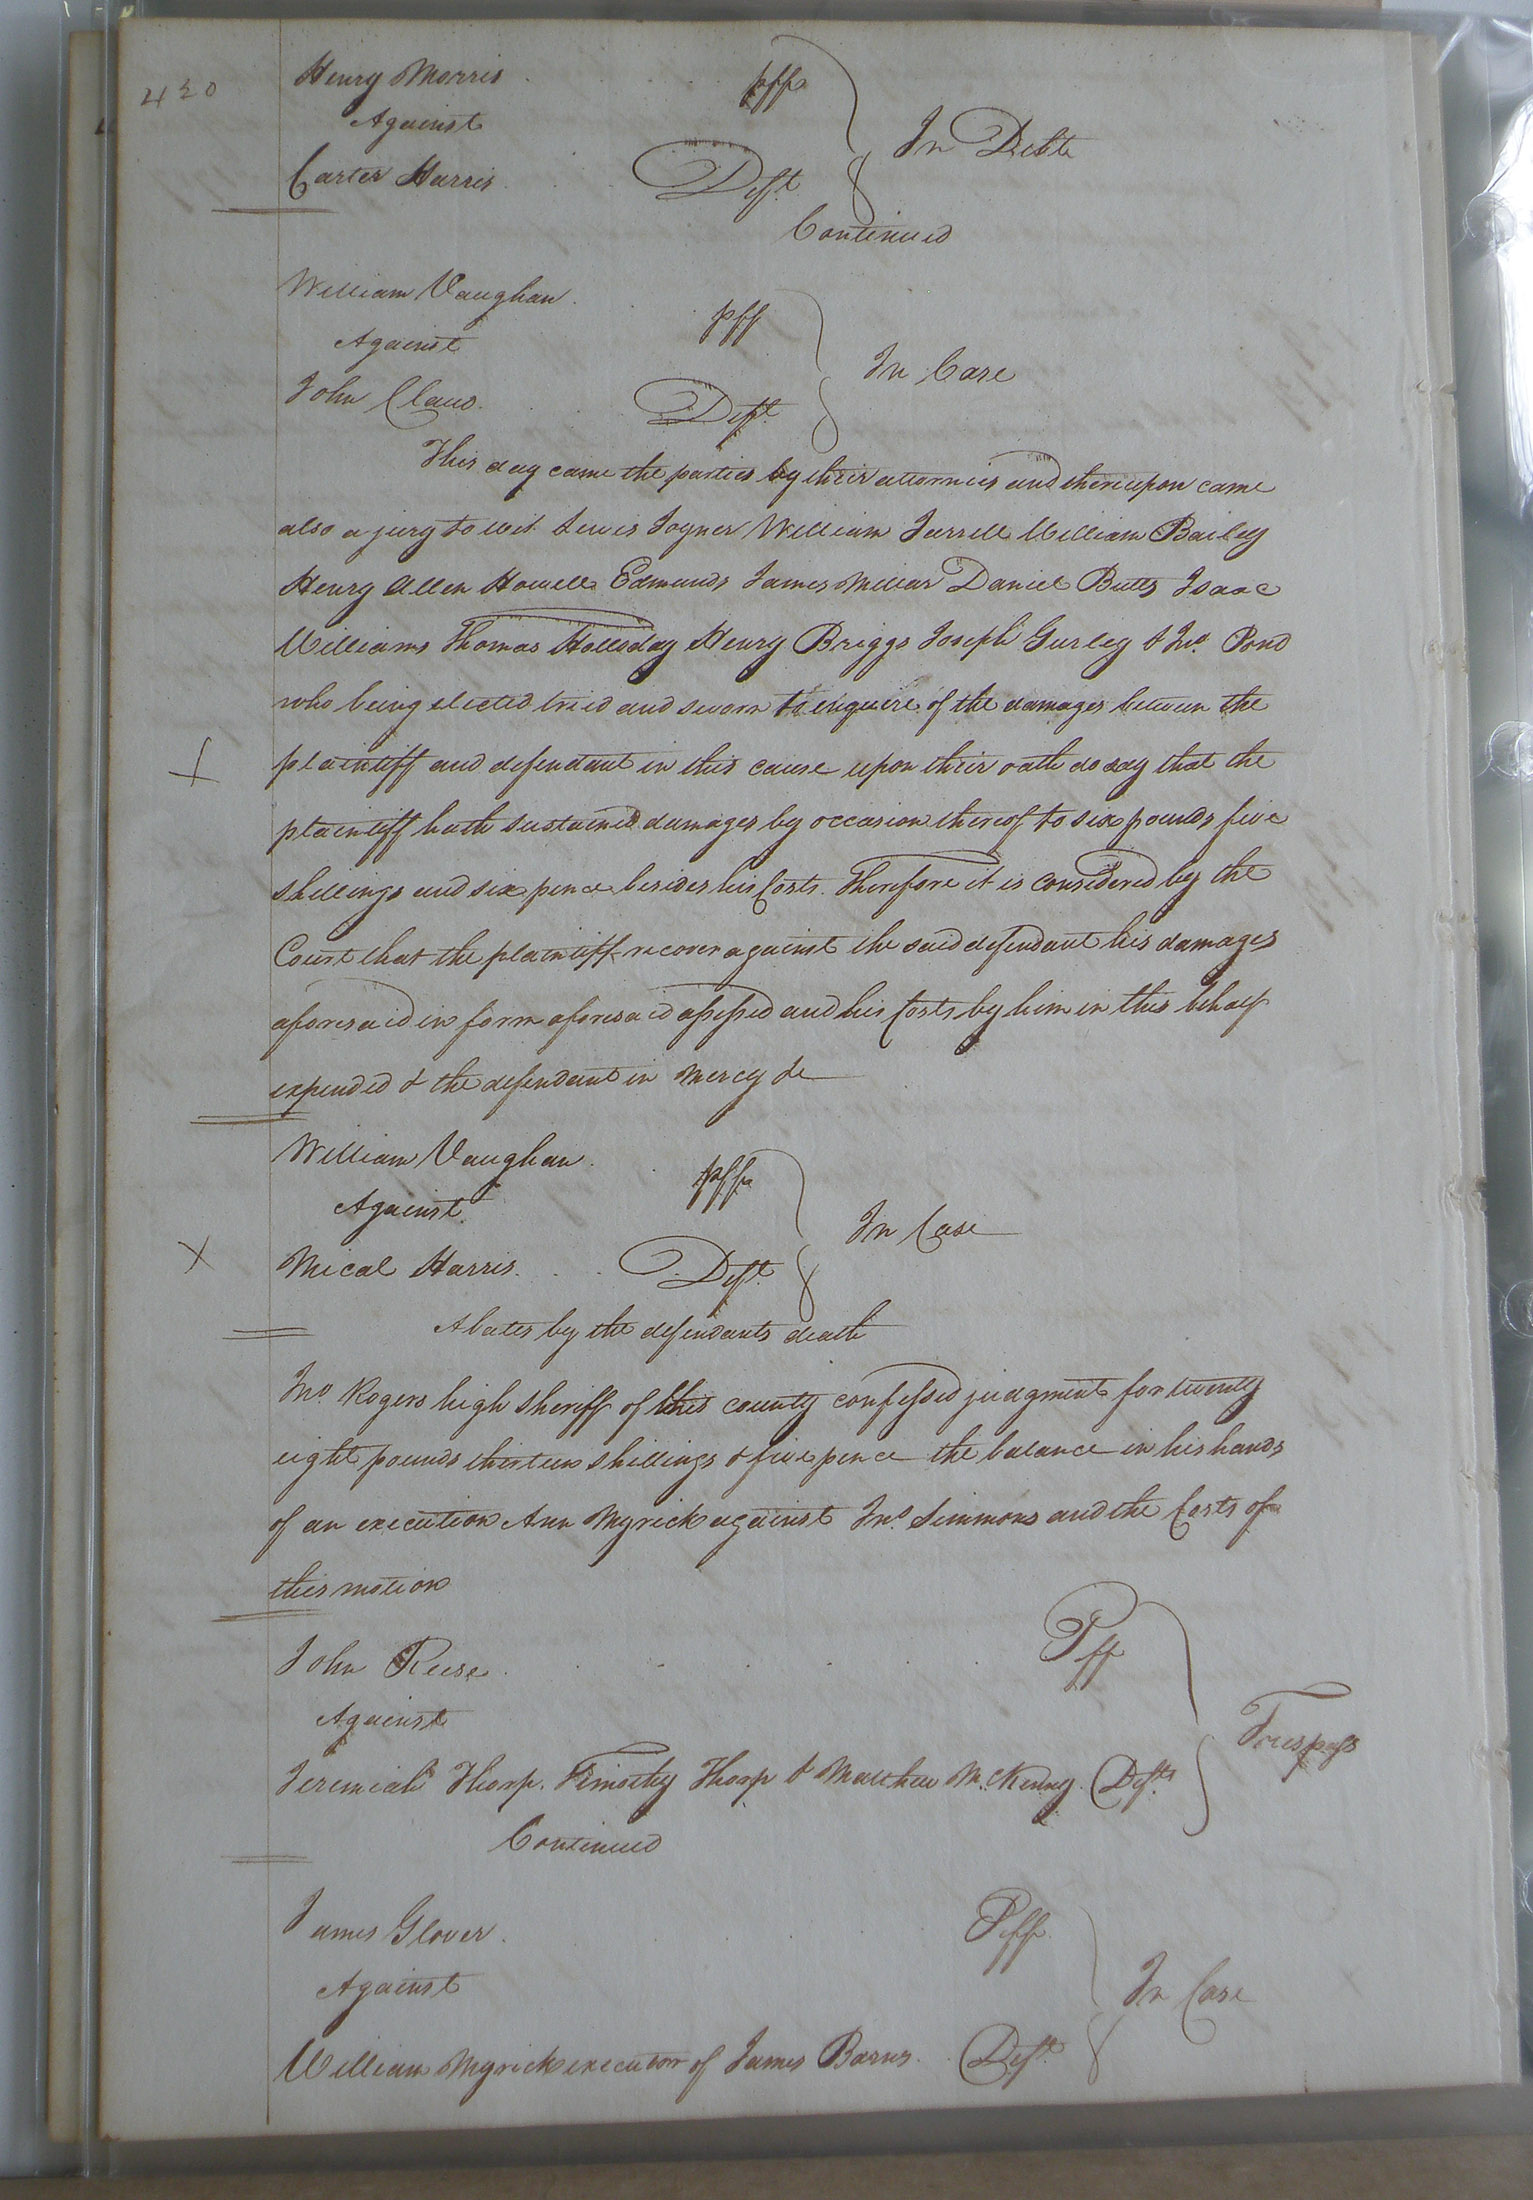 420
Henry Morris Plff
Against
In Debt
Carter Harris Deft
Continued
William Vaughan Plff
Against
In Case
John Claud Deft
This day came the parties by their attornies and thereupon came
also a jury to wit Lewis Joyner William Ferrell William Bailey
Henry Allen Howell Edmunds James Millar Daniel Butts Isaac
Williams Thomas Holleday Henry Briggs Joseph Gurley & Jno. Pond
who being elected tried and sworn to enquire of the damages between the
plaintiff and defendant in this cause upon their oath do say that the
plaintiff hath sustained damages by occasion thereof to six pounds five
shillings and six pence besides his Costs. Therefore it is considered by the
Court that the plaintiff recover against the said defendant his damages
aforesaid in form aforesaid assessed and his Costs by him in this behalf
expended & the defendant in mercy &c
William Vaughan Plff
Against
In Case
X
Mical Harris Deft
Abates by the defendants death
Jno. Rogers high Sheriff of this county confessed judgment for twenty
eight pounds thirteen shillings & five pence the balance in his hands
of an execution Ann Myrick against Jno. Simmons and the Costs of
this motion
John Reese Plff
Against
Trespass
Jeremiah Thorp. Timothy Thorp & Matthew McKenny. Defts
Continued
James Glover Plff
Against
In Case
William Myrick executor of James Barns. Deft